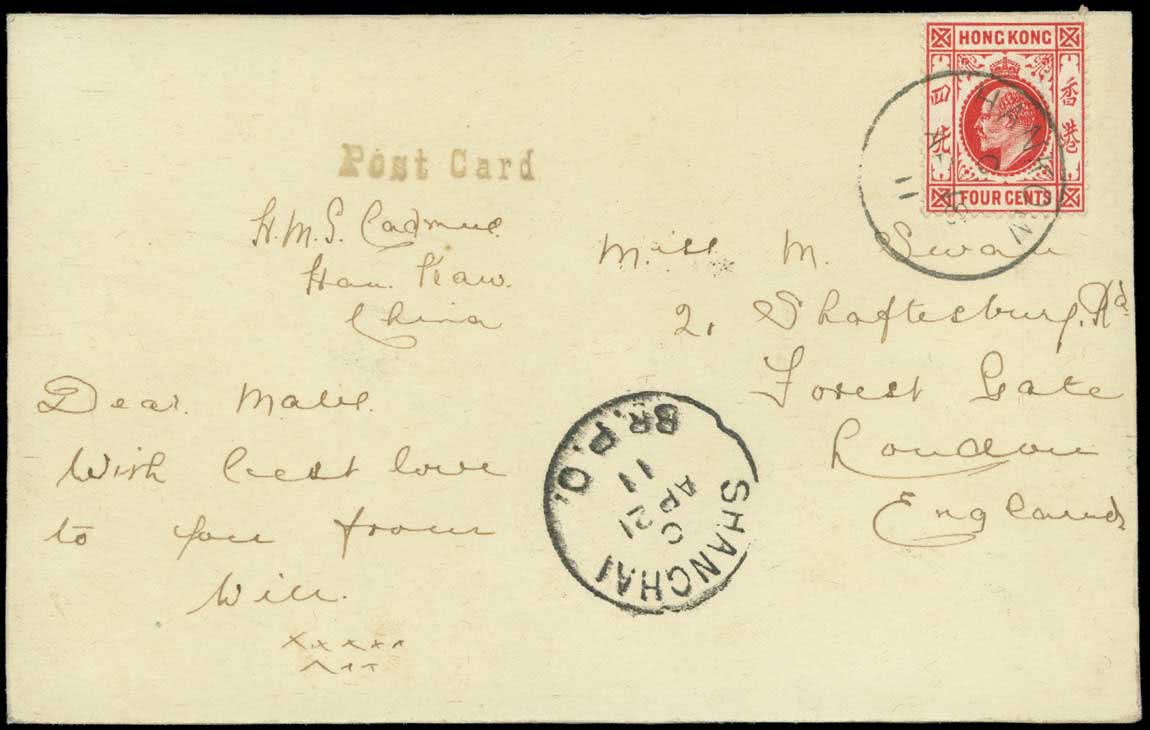 HONG KONG
香港
四銑
FOUR CENTS
HANKOW
11
Post Card
H.M.S. Cadmus
Han Kaw.
China
Miss M. Swan
2, Shaftesbury. Rd
Forest Gate
London
England
Dear. Mabel.
With best love
to you from
Will.
xxxxx
xxx
SHANGHAI
BR. P. O.
C
AP 21
11